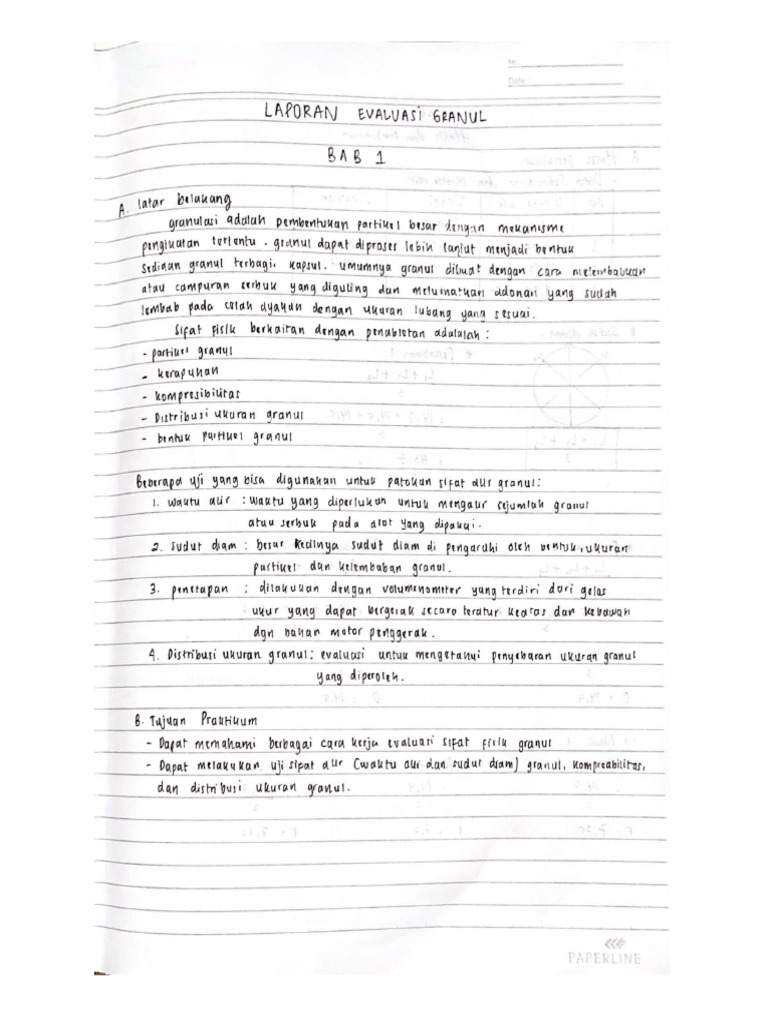 No:
Date:
LAPORAN EVALUASI GRANUL
BAB 1
A. latar belakang
granulasi adalah pembentukan partikel besar dengan mekanisme
pengikatan tertentu. granul dapat diproses lebih lanjut menjadi bentuk
sediaan granul terbagi, kapsul. umumnya granul dibuat dengan cara melembabkan
atau campuran serbuk yang digiling dan melumatkan adonan yang sudah
lembab pada celah ayakan dengan ukuran lubang yang sesuai.
Sifat fisik berkaitan dengan penabletan adalalah :
- partikel granul
- kerapuhan
- kompresibilitas
- Distribusi ukuran granul
- bentuk partikel granul
Beberapa uji yang bisa digunakan untuk patokan sifat alir granul :
1. waktu alir : waktu yang diperlukan untuk mengalir sejumlah granul
atau serbuk pada alat yang dipakai.
2. sudut diam : besar kecilnya sudut diam di pengaruhi oleh bentuk, ukuran
partikel dan kelembaban granul.
3. penetapan : dilakukan dengan volumenometer yang terdiri dari gelas
ukur yang dapat bergerak secara teratur keatas dan kebawah
dgn bahan motor penggerak.
4. Distribusi ukuran granul : evaluasi untuk mengetahui penyebaran ukuran granul
yang diperoleh.
B. Tujuan Praktikum
- Dapat memahami berbagai cara kerja evaluasi sifat fisik granul
- Dapat melakukan uji sifat alir (waktu alir dan sudut diam) granul, kompreabilitas,
dan distribusi ukuran granul.
PAPERLINE